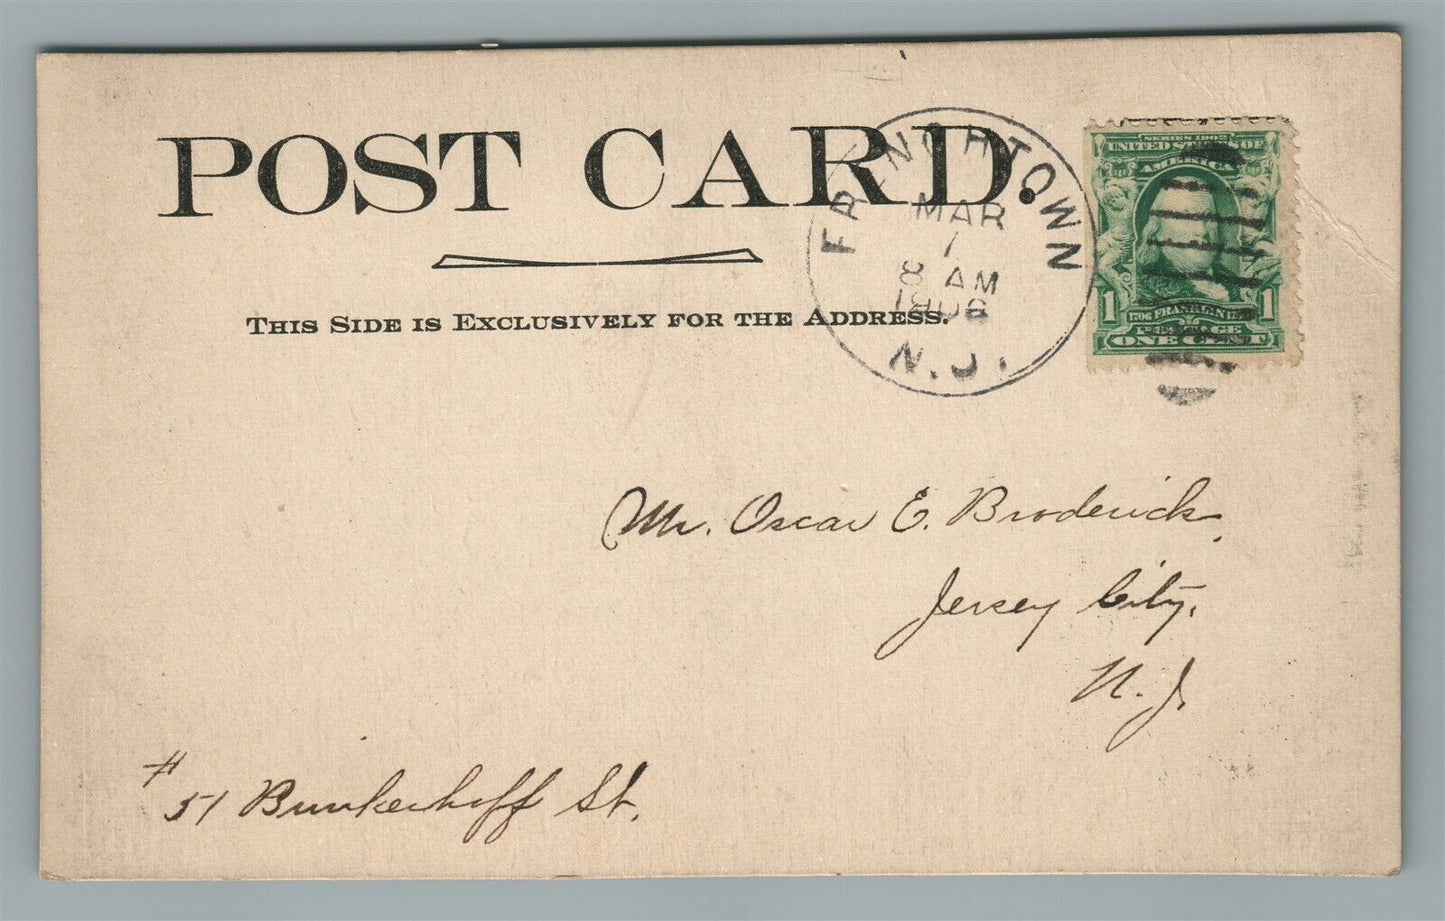 POST CARD.
THIS SIDE IS EXCLUSIVELY FOR THE ADDRESS.
FRENCHTOWN
MAR
1
8 AM
1906
N.J.
SERIES 1902
UNITED STATES OF
AMERICA
1 1706 FRANKLIN 1790 1
POSTAGE
ONE CENT
Mr. Oscar E. Broderick,
Jersey City,
N. J.
# 51 Brinkerhoff St.